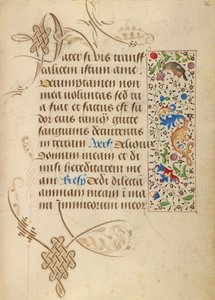 Pater si vis transfer
calicem istum a me
Verumptamen non
mea voluntas sed tu
a fiat et factus est su
dor eius tamq̃ gutte
sanguinis decurrentis
in terram Vers Reliqui
domum meam et di
misi hereditatem me
am Resp Dedi dilectā
animam meam ī man
u inimicorum meor